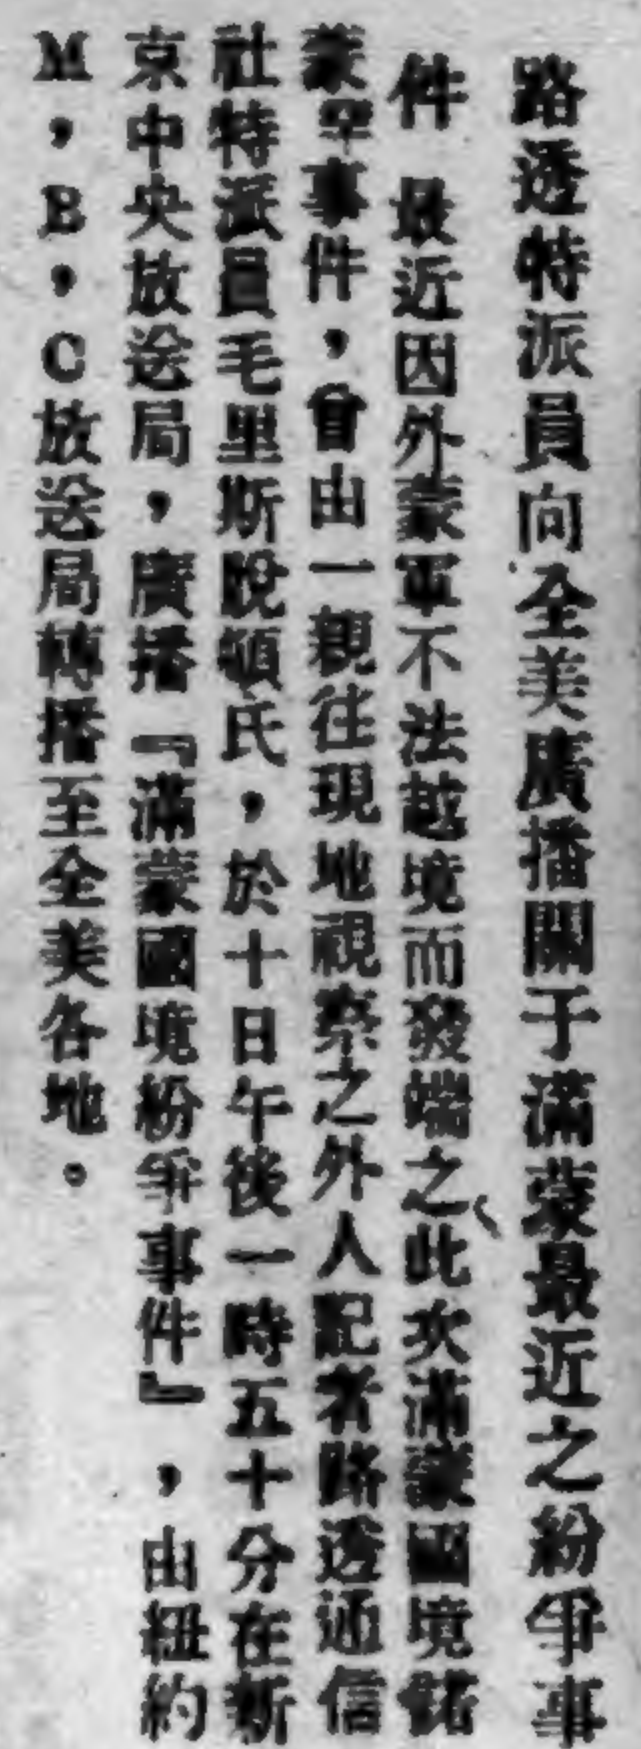 路透特派員向全美廣播關于滿蒙最近之紛爭事
件　最近因外蒙軍不法越境而發端之此次滿蒙國境
蒙軍事件，曾由一親往現地視察之外人記者路透通信
社特派員毛里斯脫頓氏，於十日午後一時五十分在新
京中央放送局，廣播『滿蒙國境紛爭事件』，由紐約
M，B，C放送局轉播至全美各地。